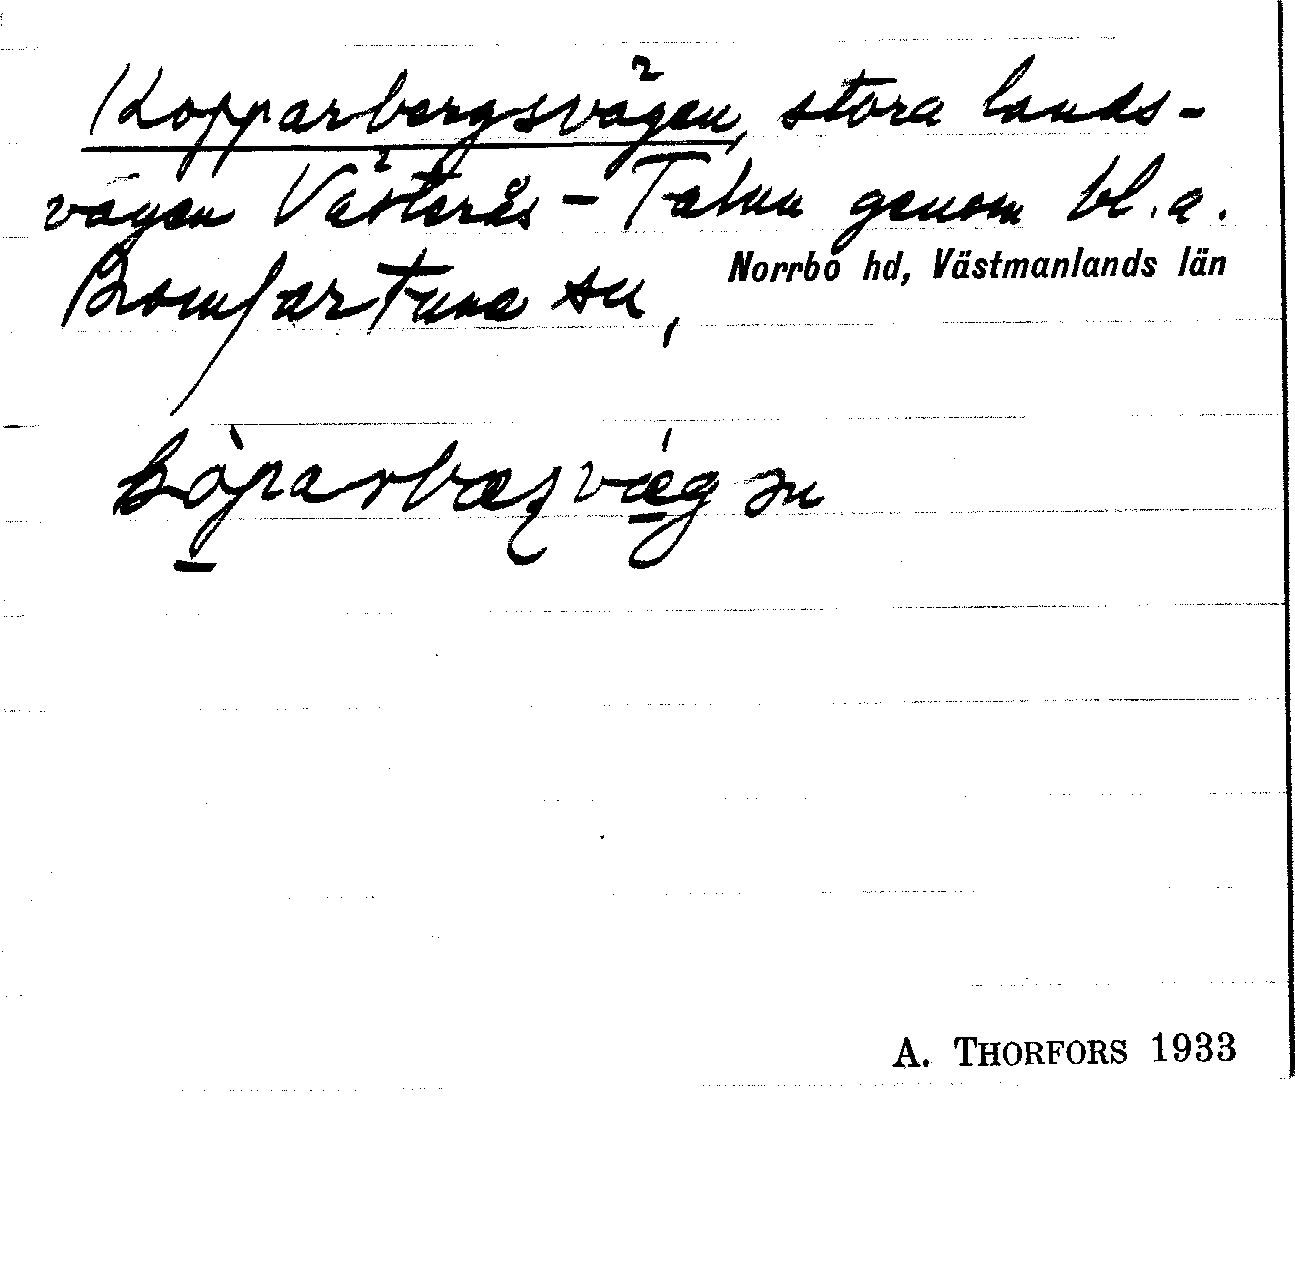 Kopparbergsvägen, stora lands-
vägen Västerås - Falun genom bl.a.
Romfartuna sn,
Norrbo hd, Västmanlands län
A. THORFORS 1933